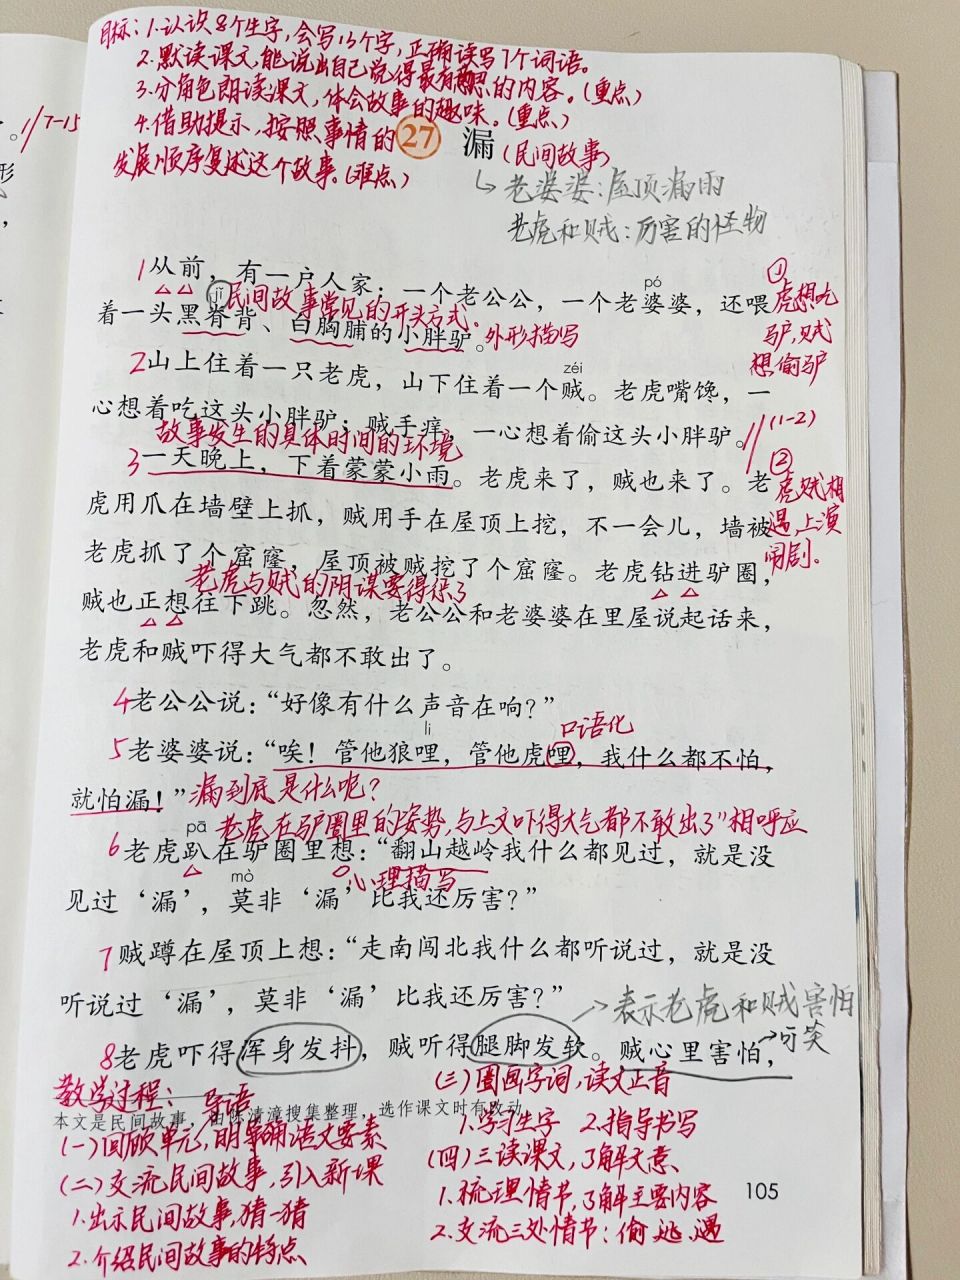 目标：1.认识8个生字，会写13个字，正确读写7个词语。
2.默读课文，能说出自己觉得最有意思的内容。（重点）
3.分角色朗读课文，体会故事的趣味。（重点）
4.借助提示，按照事情的
发展顺序复述这个故事。（难点）
27 漏
（民间故事）
老婆婆：屋顶漏雨
老虎和贼：厉害的怪物
//7-15
形
1从前，有一户人家：一个老公公，一个老婆婆，还喂
pó
jǐ
民间故事常见的开头方式。
着一头黑脊背、白胸脯的小胖驴。
外形描写
①
虎想吃
驴，贼
想偷驴
2山上住着一只老虎，山下住着一个贼。老虎嘴馋，一
zéi
心想着吃这头小胖驴；贼手痒，一心想着偷这头小胖驴。
//(1-2)
故事发生的具体时间的环境
3一天晚上，下着蒙蒙小雨。老虎来了，贼也来了。老
②
虎贼相
遇，上演
闹剧。
虎用爪在墙壁上抓，贼用手在屋顶上挖，不一会儿，墙被
老虎抓了个窟窿，屋顶被贼挖了个窟窿。老虎钻进驴圈，
老虎与贼的阴谋要得逞了
贼也正想往下跳。忽然，老公公和老婆婆在里屋说起话来，
老虎和贼吓得大气都不敢出了。
4老公公说：“好像有什么声音在响？”
li
口语化
5老婆婆说：“唉！管他狼哩，管他虎哩，我什么都不怕，
就怕漏！”
漏到底是什么呢？
pā
老虎在驴圈里的姿势，与上文吓得大气都不敢出了”相呼应
6老虎趴在驴圈里想：“翻山越岭我什么都见过，就是没
mò
心理描写
见过‘漏’，莫非‘漏’比我还厉害？”
7贼蹲在屋顶上想：“走南闯北我什么都听说过，就是没
听说过‘漏’，莫非‘漏’比我还厉害？”
→表示老虎和贼害怕
→可笑
8老虎吓得浑身发抖，贼听得腿脚发软。贼心里害怕，
教学过程：
导语
本文是民间故事，由陈清漳搜集整理，选作课文时有改动。
（一）回顾单元，明确语文要素
（二）交流民间故事，引入新课
1.出示民间故事，猜一猜
2.介绍民间故事的特点
（三）圈画字词，读文正音
1.学习生字 2.指导书写
（四）三读课文，了解文意
1.梳理情节，了解主要内容
2.交流三处情节：偷、逃、遇
105